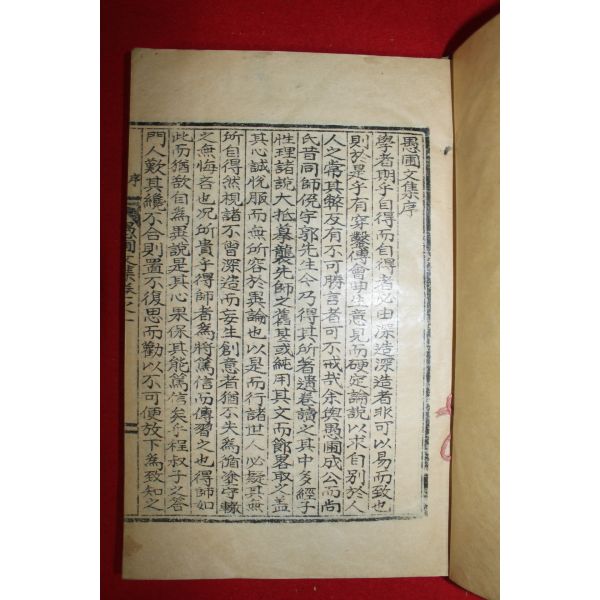 愚圃文集序
學者期乎自得而自得者必由深造深造者非可以易而致也
則於是乎有穿鑿傅會曲生意見而硬定論說以求自別於人
人之常其弊反有不可勝言者可不戒哉余與愚圃成公而尙
氏昔同師俛宇郭先生今乃得其所著遺卷讀之其中多經子
性理諸說大抵摹襲先師之舊甚或純用其文而節畧取之盖
其心誠悅服而無所容於異論也以是而行諸世人必疑其無
所自得然視諸不曾深造而妄生創意者猶不失爲循塗守轍
之無悔吝也况所貴乎得師者爲將篤信而傳習之也得師如
此而猶故自爲異說是其心果係其能篤信矣乎程叔子之答
門人歎其纔不合則置不復思而勸以不可便放下爲致知之
序
愚圃文集卷之一